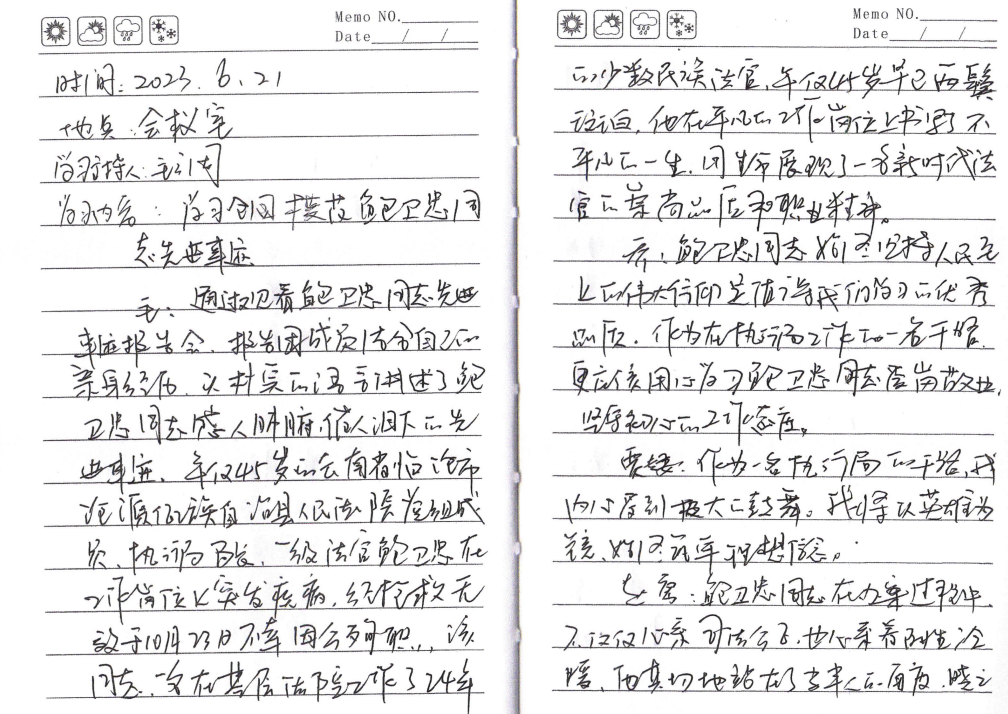 Memo NO.
Date / /
时间: 2023. 6. 21
地点: 会议室
学习主持人: 毛
学习内容: 学习全国模范鲍卫忠同
志先进事迹
毛: 通过观看鲍卫忠同志先进
事迹报告会, 报告团成员结合自己的
亲身经历, 以朴实的语言讲述了鲍
卫忠同志感人肺腑, 催人泪下的先
进事迹, 年仅45岁的云南省临沧市
沧源佤族自治县人民法院党组成
员、执行局局长、一级法官鲍卫忠在
工作岗位上突发疾病, 经抢救无
效于10月23日不幸因公殉职... 该
同志, 一名在基层法院工作了24年
Memo NO.
Date / /
的少数民族法官, 年仅45岁早已两鬓
斑白, 他在平凡的工作岗位上书写了不
平凡的一生, 用生命展现了一名新时代法
官的崇高品质和职业精神。
乔: 鲍卫忠同志始终坚持人民至
上的伟大信仰是值得我们学习的优秀
品质, 作为在执行局工作的一名干警,
更应该用心学习鲍卫忠同志爱岗敬业,
坚守初心的工作态度。
作为一名执行局的干警, 我
内心受到极大的鼓舞。我将以英雄为
镜, 始终牢理想信念。
: 鲍卫忠同志在办案过程中,
不仅仅心系司法公正, 也心系着民生冷
暖, 他真切地站在了当事人的角度, 晓之